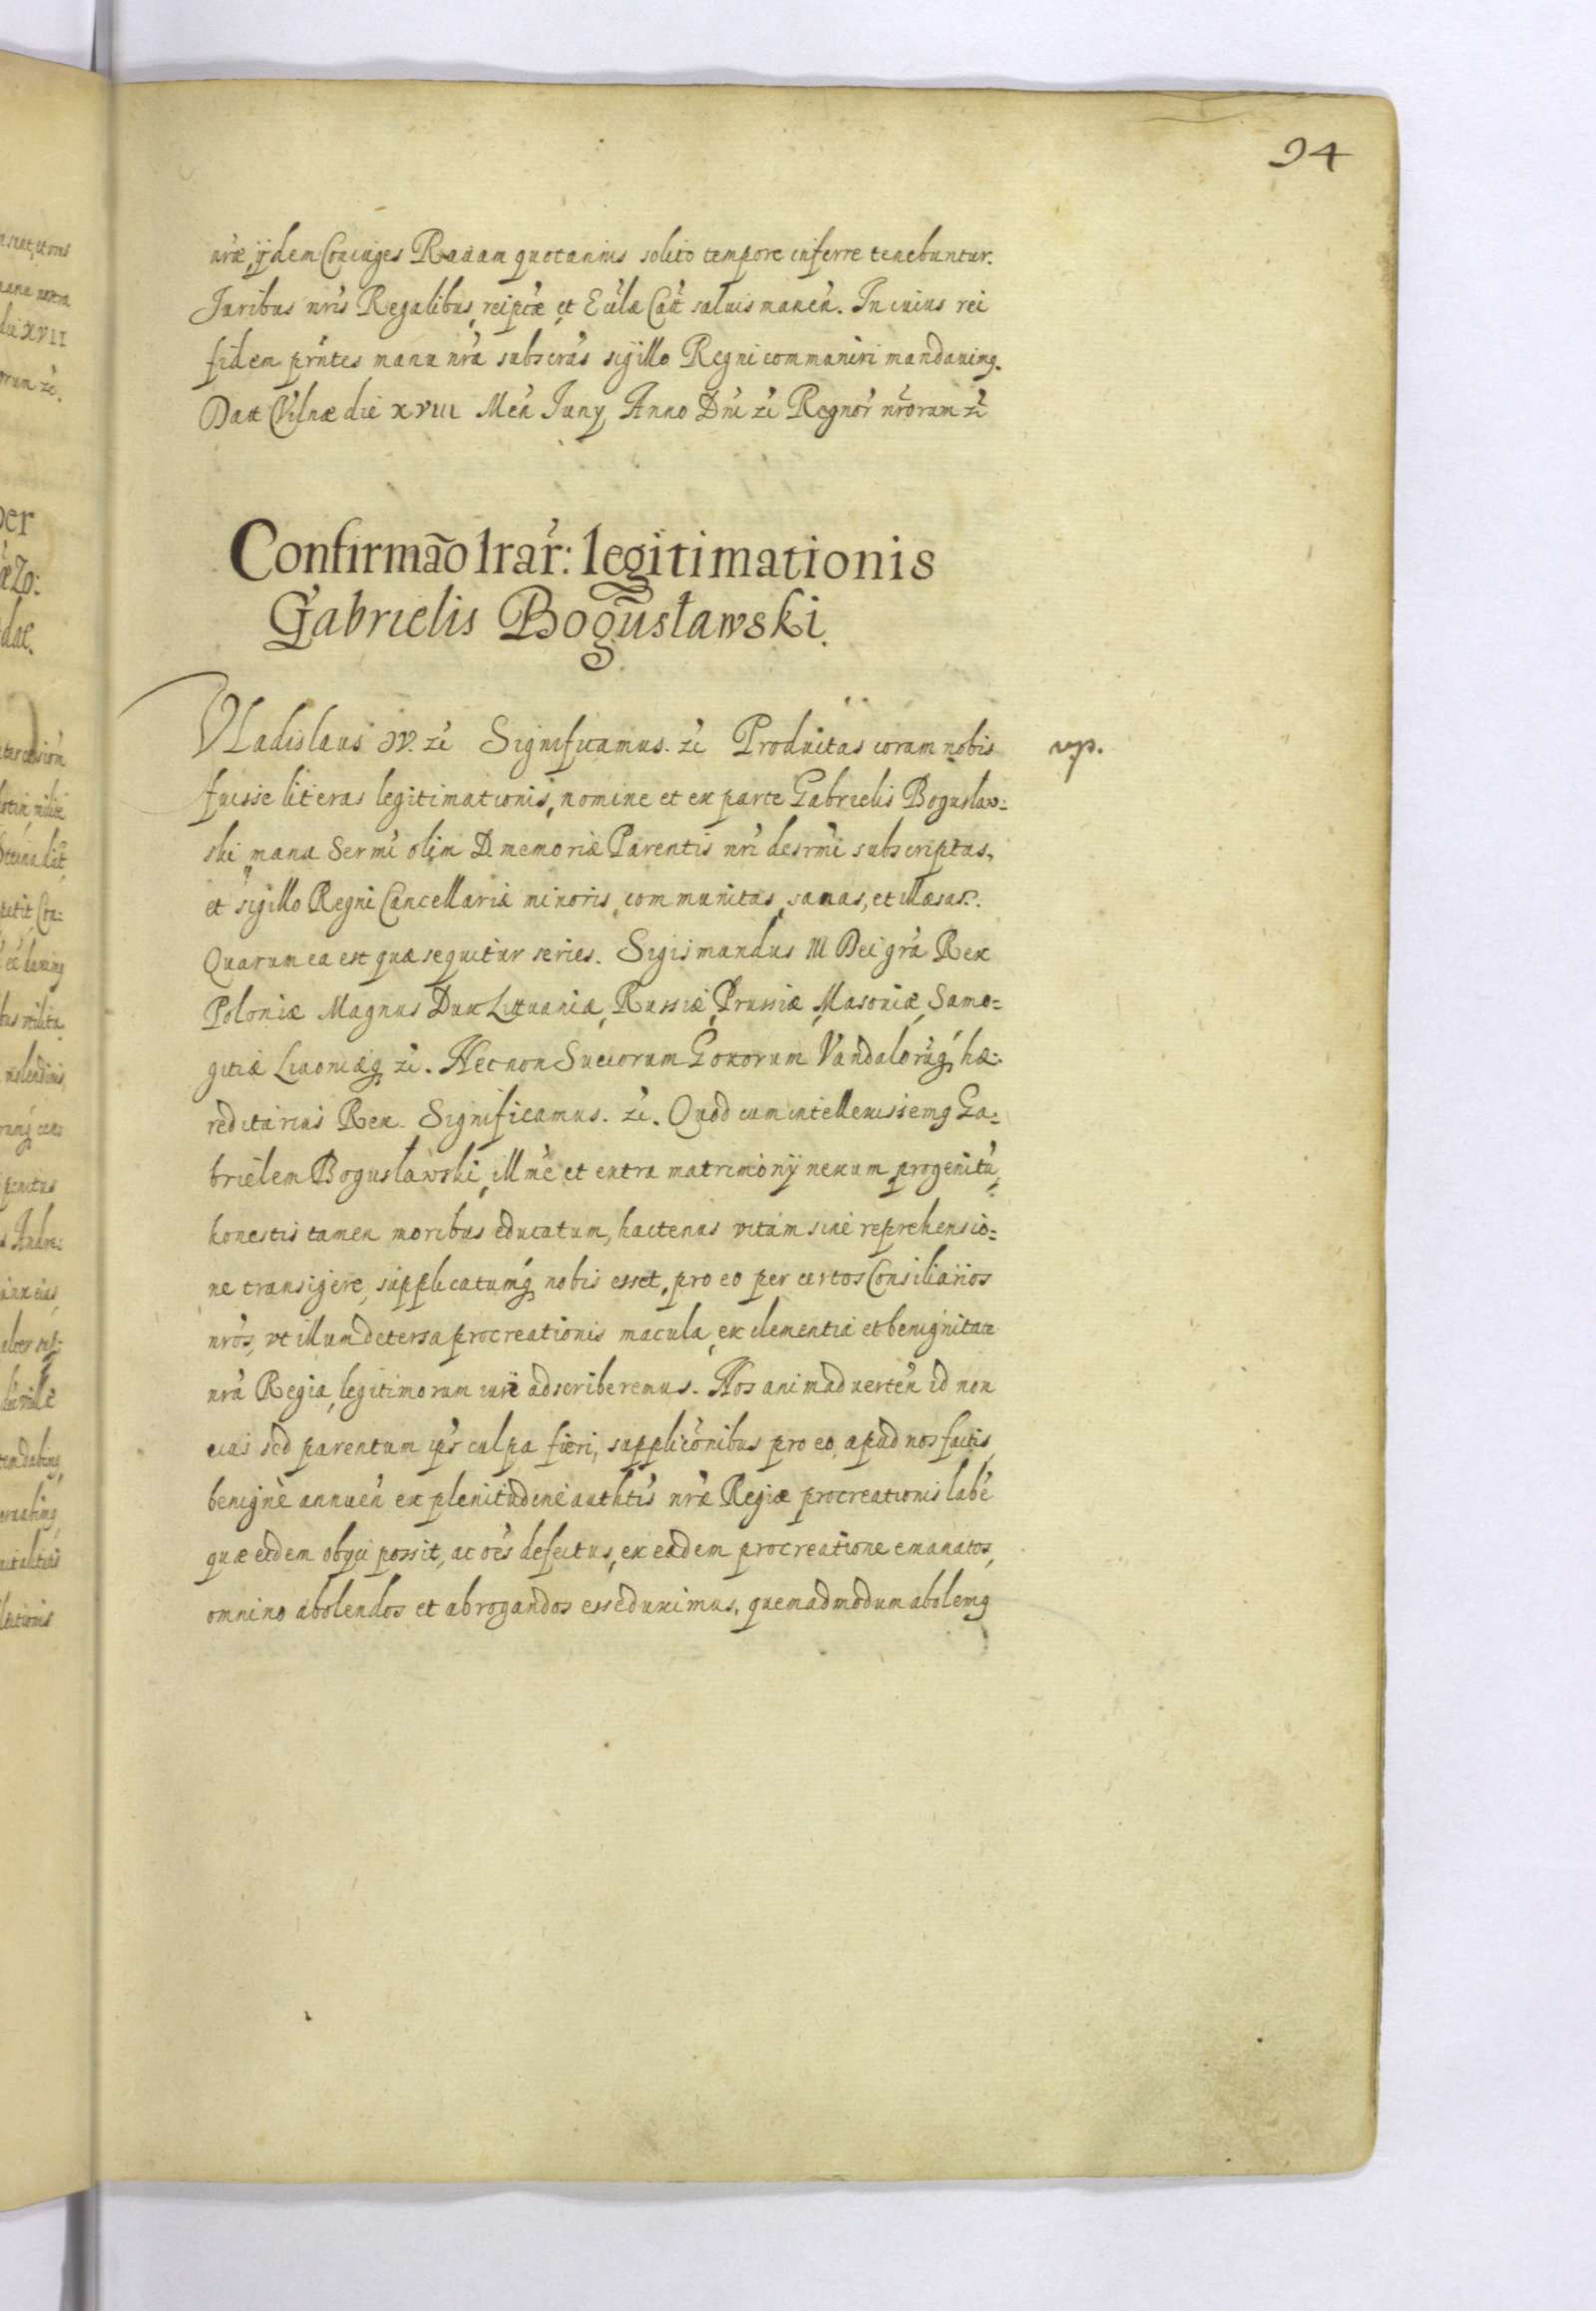 94
nrae, ijdem Coniuges Rauam quotannis solito tempore inferre tenebuntur.
Juribus nris Regalibus, reiptae, et Ecclae Catt saluis manen. In cuius rei
fidem prntes manu nra subscras sigillo Regni communiri mandauimq.
Datt Vilnae die XVIII Men Juny, Anno Dni zc Regnor nrorum zc
Confirmão lrar: legitimationis
Gabrielis Bogusławski.
Vladislaus IV. zc Significamus. zc Productas coram nobis
vp.
fuisse literas legitimationis, nomine et ex parte Gabrielis Boguslaw=
ski, manu Sermi olim D. memoriae Parentis nri desrmi subscriptas,
et sigillo Regni Cancellariae minoris, communitas, sanas, et illaesas.
Quarum ea est quae sequitur series. Sigismundus III Dei gra Rex
Poloniae Magnus Dux Littuaniae, Russiae, Prussiae, Masouiae, Samo=
gitiae Liuoniaeq, zc. Necnon Sueuorum Gottorum Vandalorūq, hae=
reditarius Rex. Significamus. zc. Quod cum intellexissemq Ga=
brielem Bogusławski, illme et extra matrimonij nexum progenitū,
honestis tamen moribus educatum, hactenus vitam sine reprehensio=
ne transigere, supplicatumq, nobis esset, pro eo per certos Consiliarios
nros, vt illum detersa procreationis macula, ex clementia et benignitate
nra Regia, legitimorum iuri adscriberemus. Nos animaduerten id non
eius sed parentum ips culpa fieri, supplicōnibus pro eo, apud nos factis,
benigne annuen ex plenitudine authtis nrae Regiae procreationis labē
quae eidem obijci possit, ac oēs defectus, ex eadem procreatione emanatos,
omnino abolendos et abrogandos esse duximus, quemadmodum abolemq